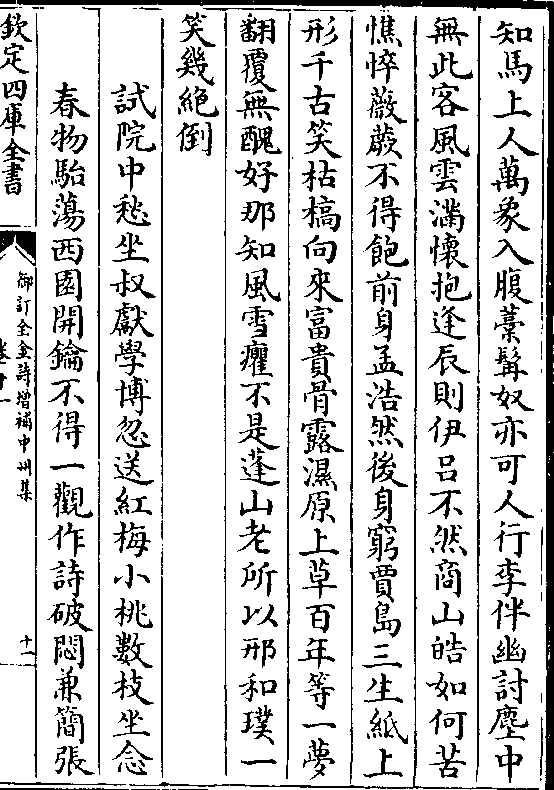 知馬上人萬象入腹藁髯奴亦可人行李伴幽討塵中
無此客風雲滿懷抱逢辰則伊吕不然商山皓如何苦
憔悴薇蕨不得飽前身孟浩然後身窮賈島三生紙上
形千古笑枯槁向來富貴骨露濕原上草百年等一夢
翻覆無醜好那知風雪癯不是蓬山老所以邢和璞一
笑幾絶倒
試院中愁坐叔獻學博忽送紅梅小桃數枝坐念
春物駘蕩西園開鑰不得一觀作詩破悶兼簡張
欽定四庫全書
御訂全金詩增補中州集
卷十一
十一